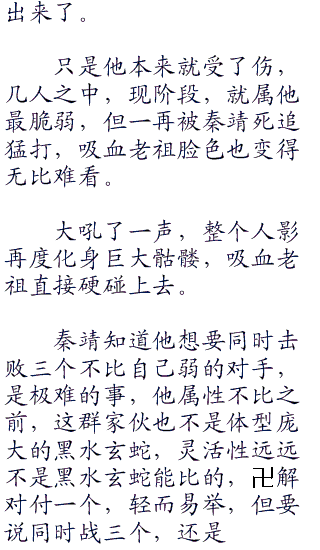 出来了。
只是他本来就受了伤，
几人之中，现阶段，就属他
最脆弱，但一再被秦靖死追
猛打，吸血老祖脸色也变得
无比难看。
大吼了一声，整个人影
再度化身巨大骷髅，吸血老
祖直接硬碰上去。
秦靖知道他想要同时击
败三个不比自己弱的对手，
是极难的事，他属性不比之
前，这群家伙也不是体型庞
大的黑水玄蛇，灵活性远远
不是黑水玄蛇能比的，卍解
对付一个，轻而易举，但要
说同时战三个，还是